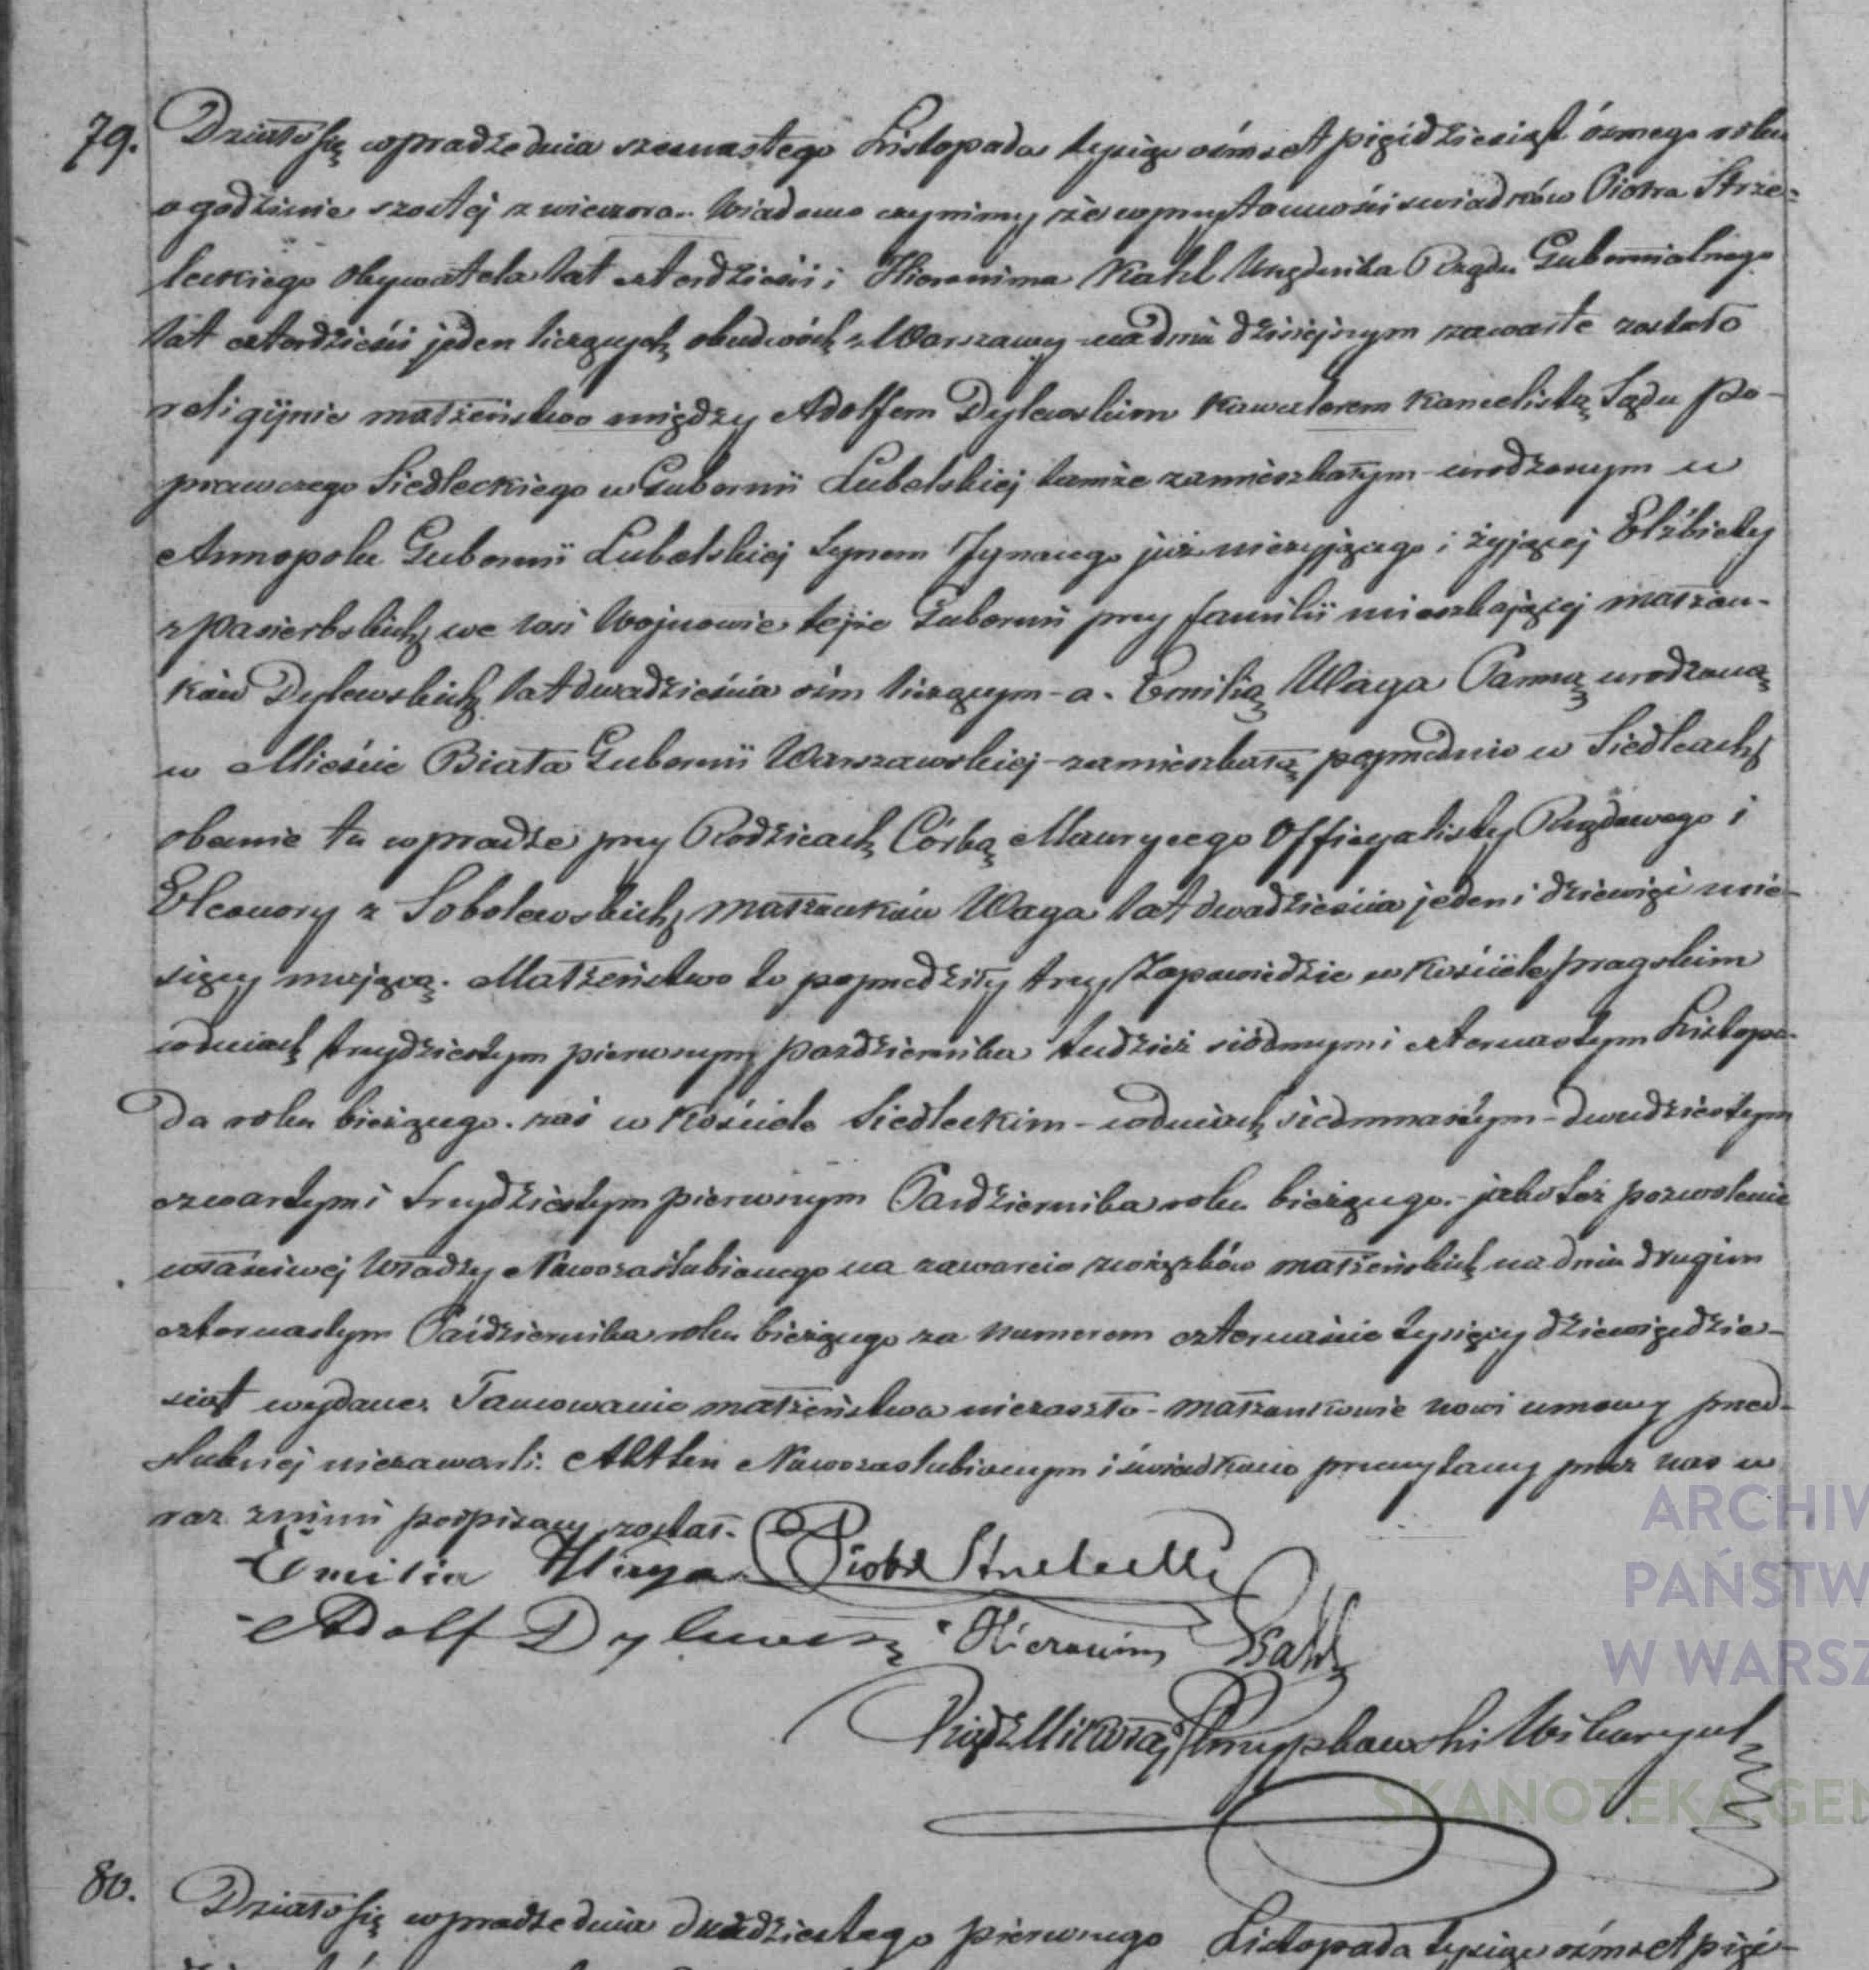 79. Działo się w pradze dnia szesnastego Listopada tysiąc ośmset pięćdziesiąt ósmego roku
o godzinie szóstej z wieczora. Wiadomo czynimy że w przytomności świadków Piotra Strze-
leckiego Obywatela lat czterdzieści i Hieronima Kahl Urzędnika Rządu Gubernialnego
lat czterdzieści jeden liczących obudwóch z Warszawy na dniu dzisiejszym zawarte zostało
religijnie małżeństwo między Adolfem Dylewskim Kawalerem Kancelistą Sądu Po-
prawczego Siedleckiego w Gubernii Lubelskiej tamże zamieszkałym urodzonym w
Annopolu Gubernii Lubelskiej Synem Ignacego już nieżyjącego i żyjącej Elżbiety
z Pasierbskich we wsi Wojnowie tejże Gubernii przy familii mieszkającej małżon-
ków Dylewskich lat dwadzieścia ośm liczącym - a. Emilią Waga Panną urodzoną
w Mieście Biała Gubernii Warszawskiej - zamieszkałą poprzednio w Siedlcach
obecnie tu w pradze przy Rodzicach Córką Maurycego Officyalisty Rządowego i
Eleonory z Sobolewskich małżonków Waga lat dwadzieścia jeden i dziewięć mie-
sięcy mającą. Małżeństwo to poprzedziły trzy Zapowiedzie w Kościele pragskim
w dniach trzydziestym pierwszym października tudzież siódmym i czternastym Listopa-
da roku bieżącego. zaś w Kościele Siedleckim - w dniach siedmnastym - dwudziestym
czwartym i trzydziestym pierwszym Października roku bieżącego. - jako też pozwolenie
właściwej Władzy Nowozaślubionego na zawarcie związków małżeńskich na dniu drugim
czternastym Października roku bieżącego za numerem czternaście tysięcy dziewięćdzie-
siąt wydane. Tamowanie małżeństwa nie zaszło - małżonkowie nowi umowy przed-
ślubnej niezawarli. Akt ten Nowozaślubionym i świadkom przeczytany przez nas w
raz z nimi podpisany został.
Emilia Waga Piotr Strzelecki
Adolf Dylewski Hieronim Kahl
Ksiądz Mikołaj Wikaryusz
80. Działo się w pradze dnia dwudziestego pierwszego Listopada tysiąc ośmset pięć-